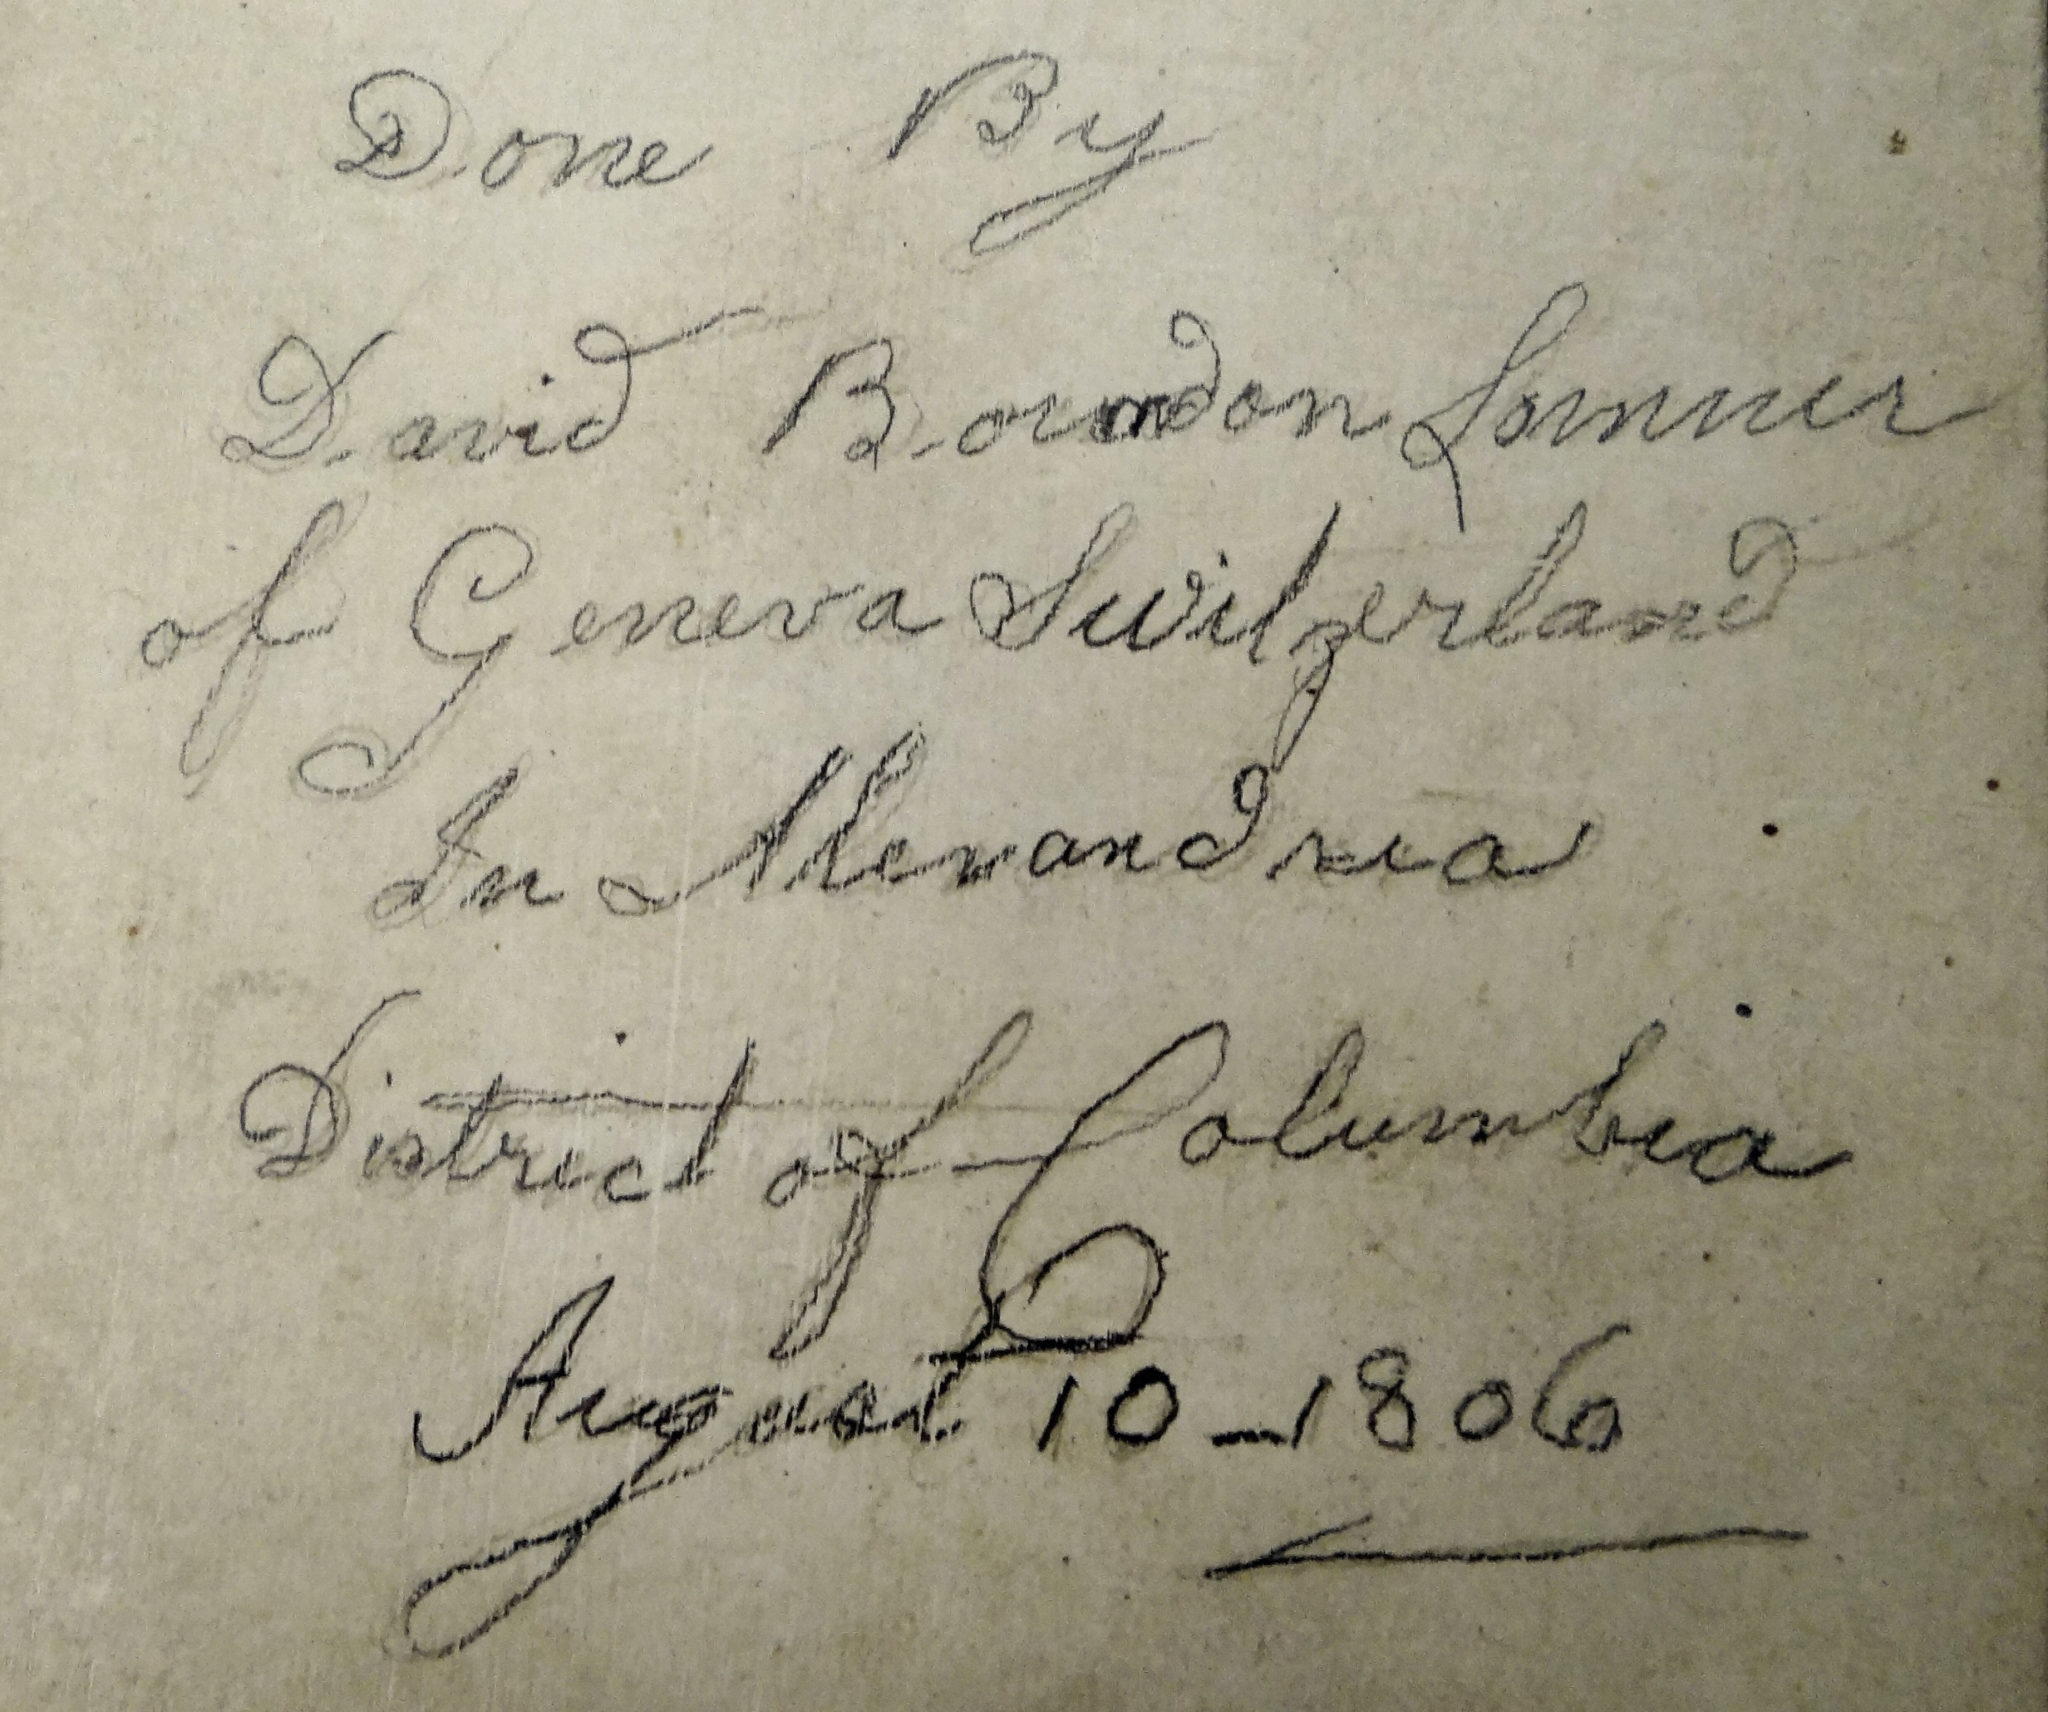 Done By
David Bourdon
of Geneva Switzerland
In Alexandria
District of Columbia
August 10 - 1806